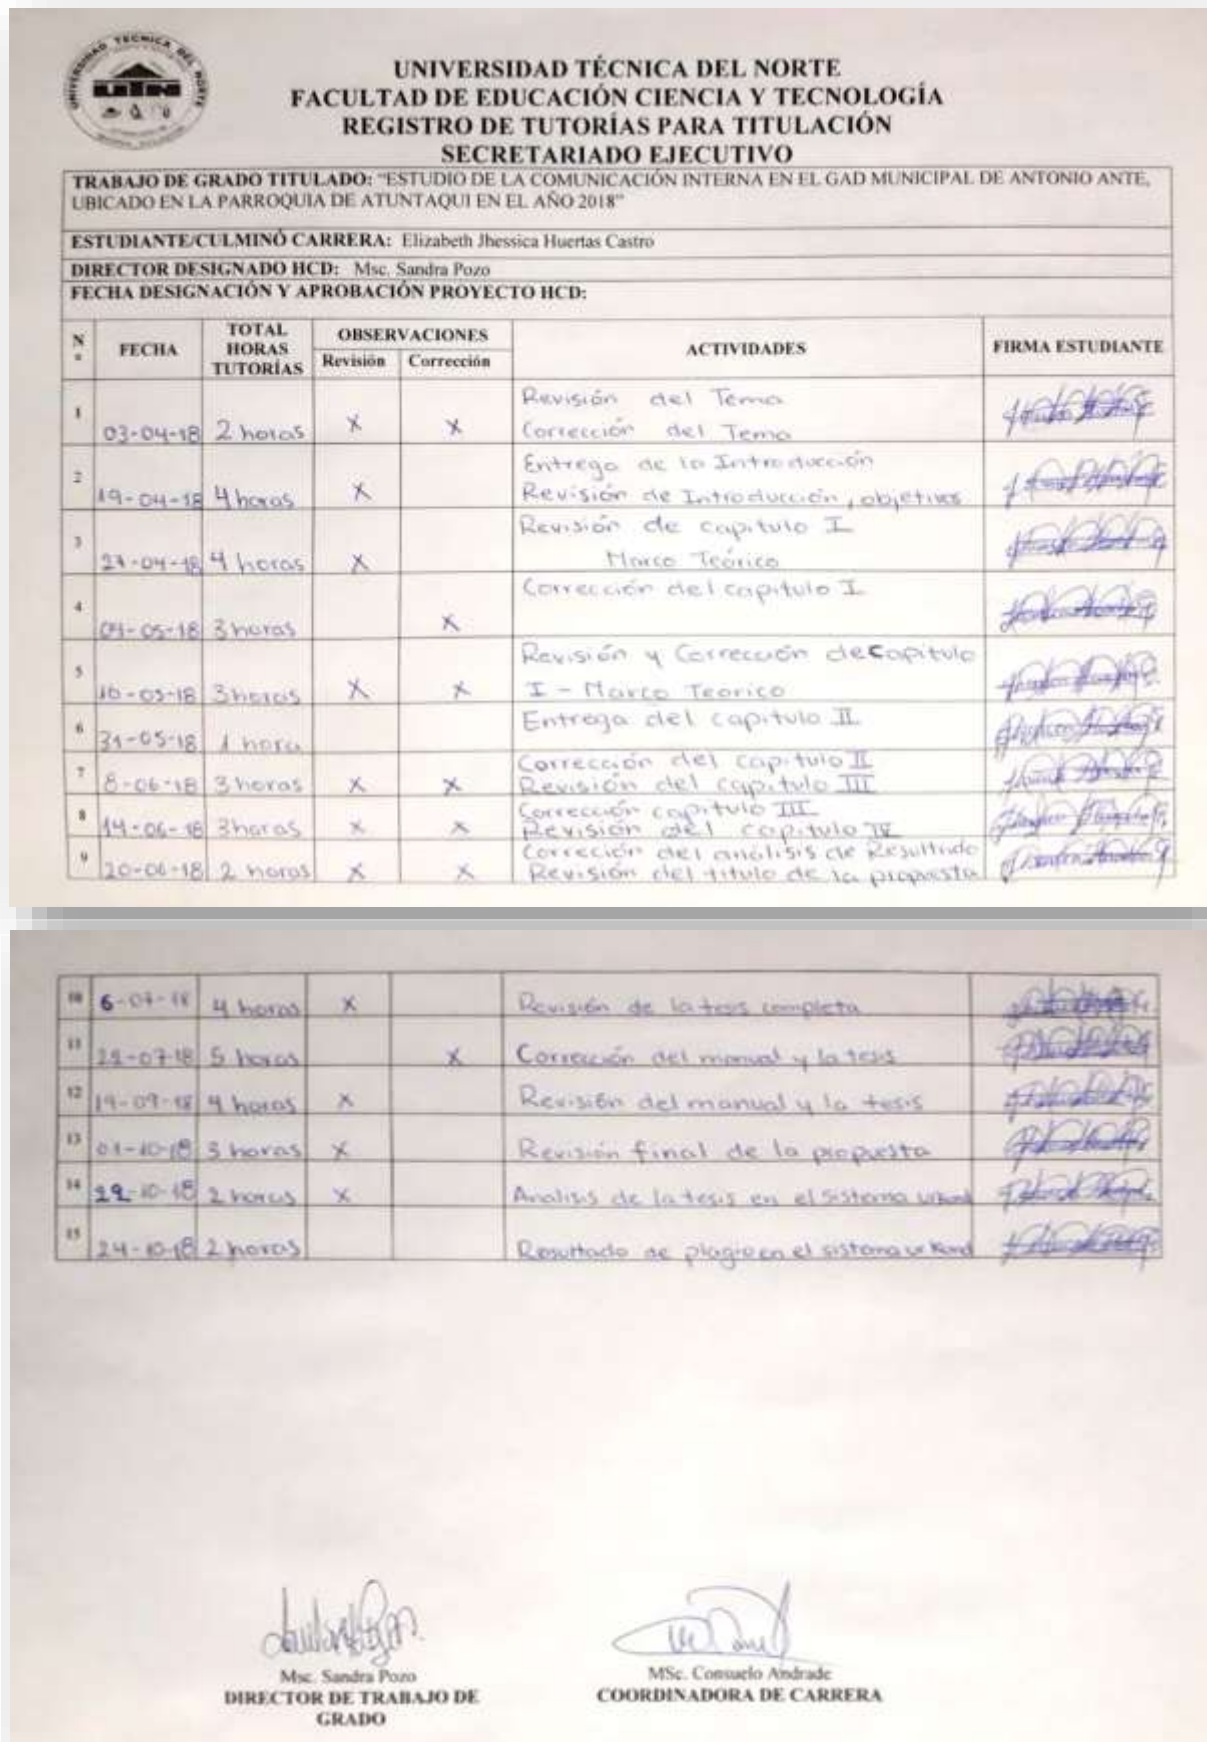 UNIVERSIDAD TECNICA DEL NORTE
UTN
UNIVERSIDAD TÉCNICA DEL NORTE
FACULTAD DE EDUCACIÓN CIENCIA Y TECNOLOGÍA
REGISTRO DE TUTORÍAS PARA TITULACIÓN
SECRETARIADO EJECUTIVO
TRABAJO DE GRADO TITULADO: "ESTUDIO DE LA COMUNICACIÓN INTERNA EN EL GAD MUNICIPAL DE ANTONIO ANTE,
UBICADO EN LA PARROQUIA DE ATUNTAQUI EN EL AÑO 2018"
ESTUDIANTE/CULMINÓ CARRERA: Elizabeth Jhessica Huertas Castro
DIRECTOR DESIGNADO HCD: Msc. Sandra Pozo
FECHA DESIGNACIÓN Y APROBACIÓN PROYECTO HCD:
N° FECHA TOTAL HORAS TUTORÍAS OBSERVACIONES ACTIVIDADES FIRMA ESTUDIANTE
Revisión Corrección
1 03-04-18 2 horas X X Revisión del Tema
Corrección del Tema
2 19-04-18 4 horas X Entrega de la Introducción
Revisión de Introducción, objetivos
3 4 horas X Revisión de capitulo I
Marco Teórico
4 3 horas X Corrección del capitulo I
5 16-05-18 3 horas X X Revisión y Corrección de Capitulo
I - Marco Teorico
6 31-05-18 1 hora Entrega del capitulo II
7 8-06-18 3 horas X X Corrección del capitulo II
Revisión del capitulo III
8 14-06-18 3 horas X X Corrección capitulo III
Revisión del capitulo IV
9 20-06-18 2 horas X X Correción del análisis de Resultado
Revisión del titulo de la propuesta
10 6-07-18 4 horas X Revisión de la tesis completa
11 5 horas X Corrección del manual y la tesis
12 19-09-18 4 horas X Revisión del manual y la tesis
13 01-10-18 3 horas X Revisión final de la propuesta
14 2 horas X Analisis de la tesis en el sistema urkund
15 24-10-18 2 horas Resultado de plagio en el sistema urkund
Msc. Sandra Pozo
DIRECTOR DE TRABAJO DE
GRADO
MSc. Consuelo Andrade
COORDINADORA DE CARRERA